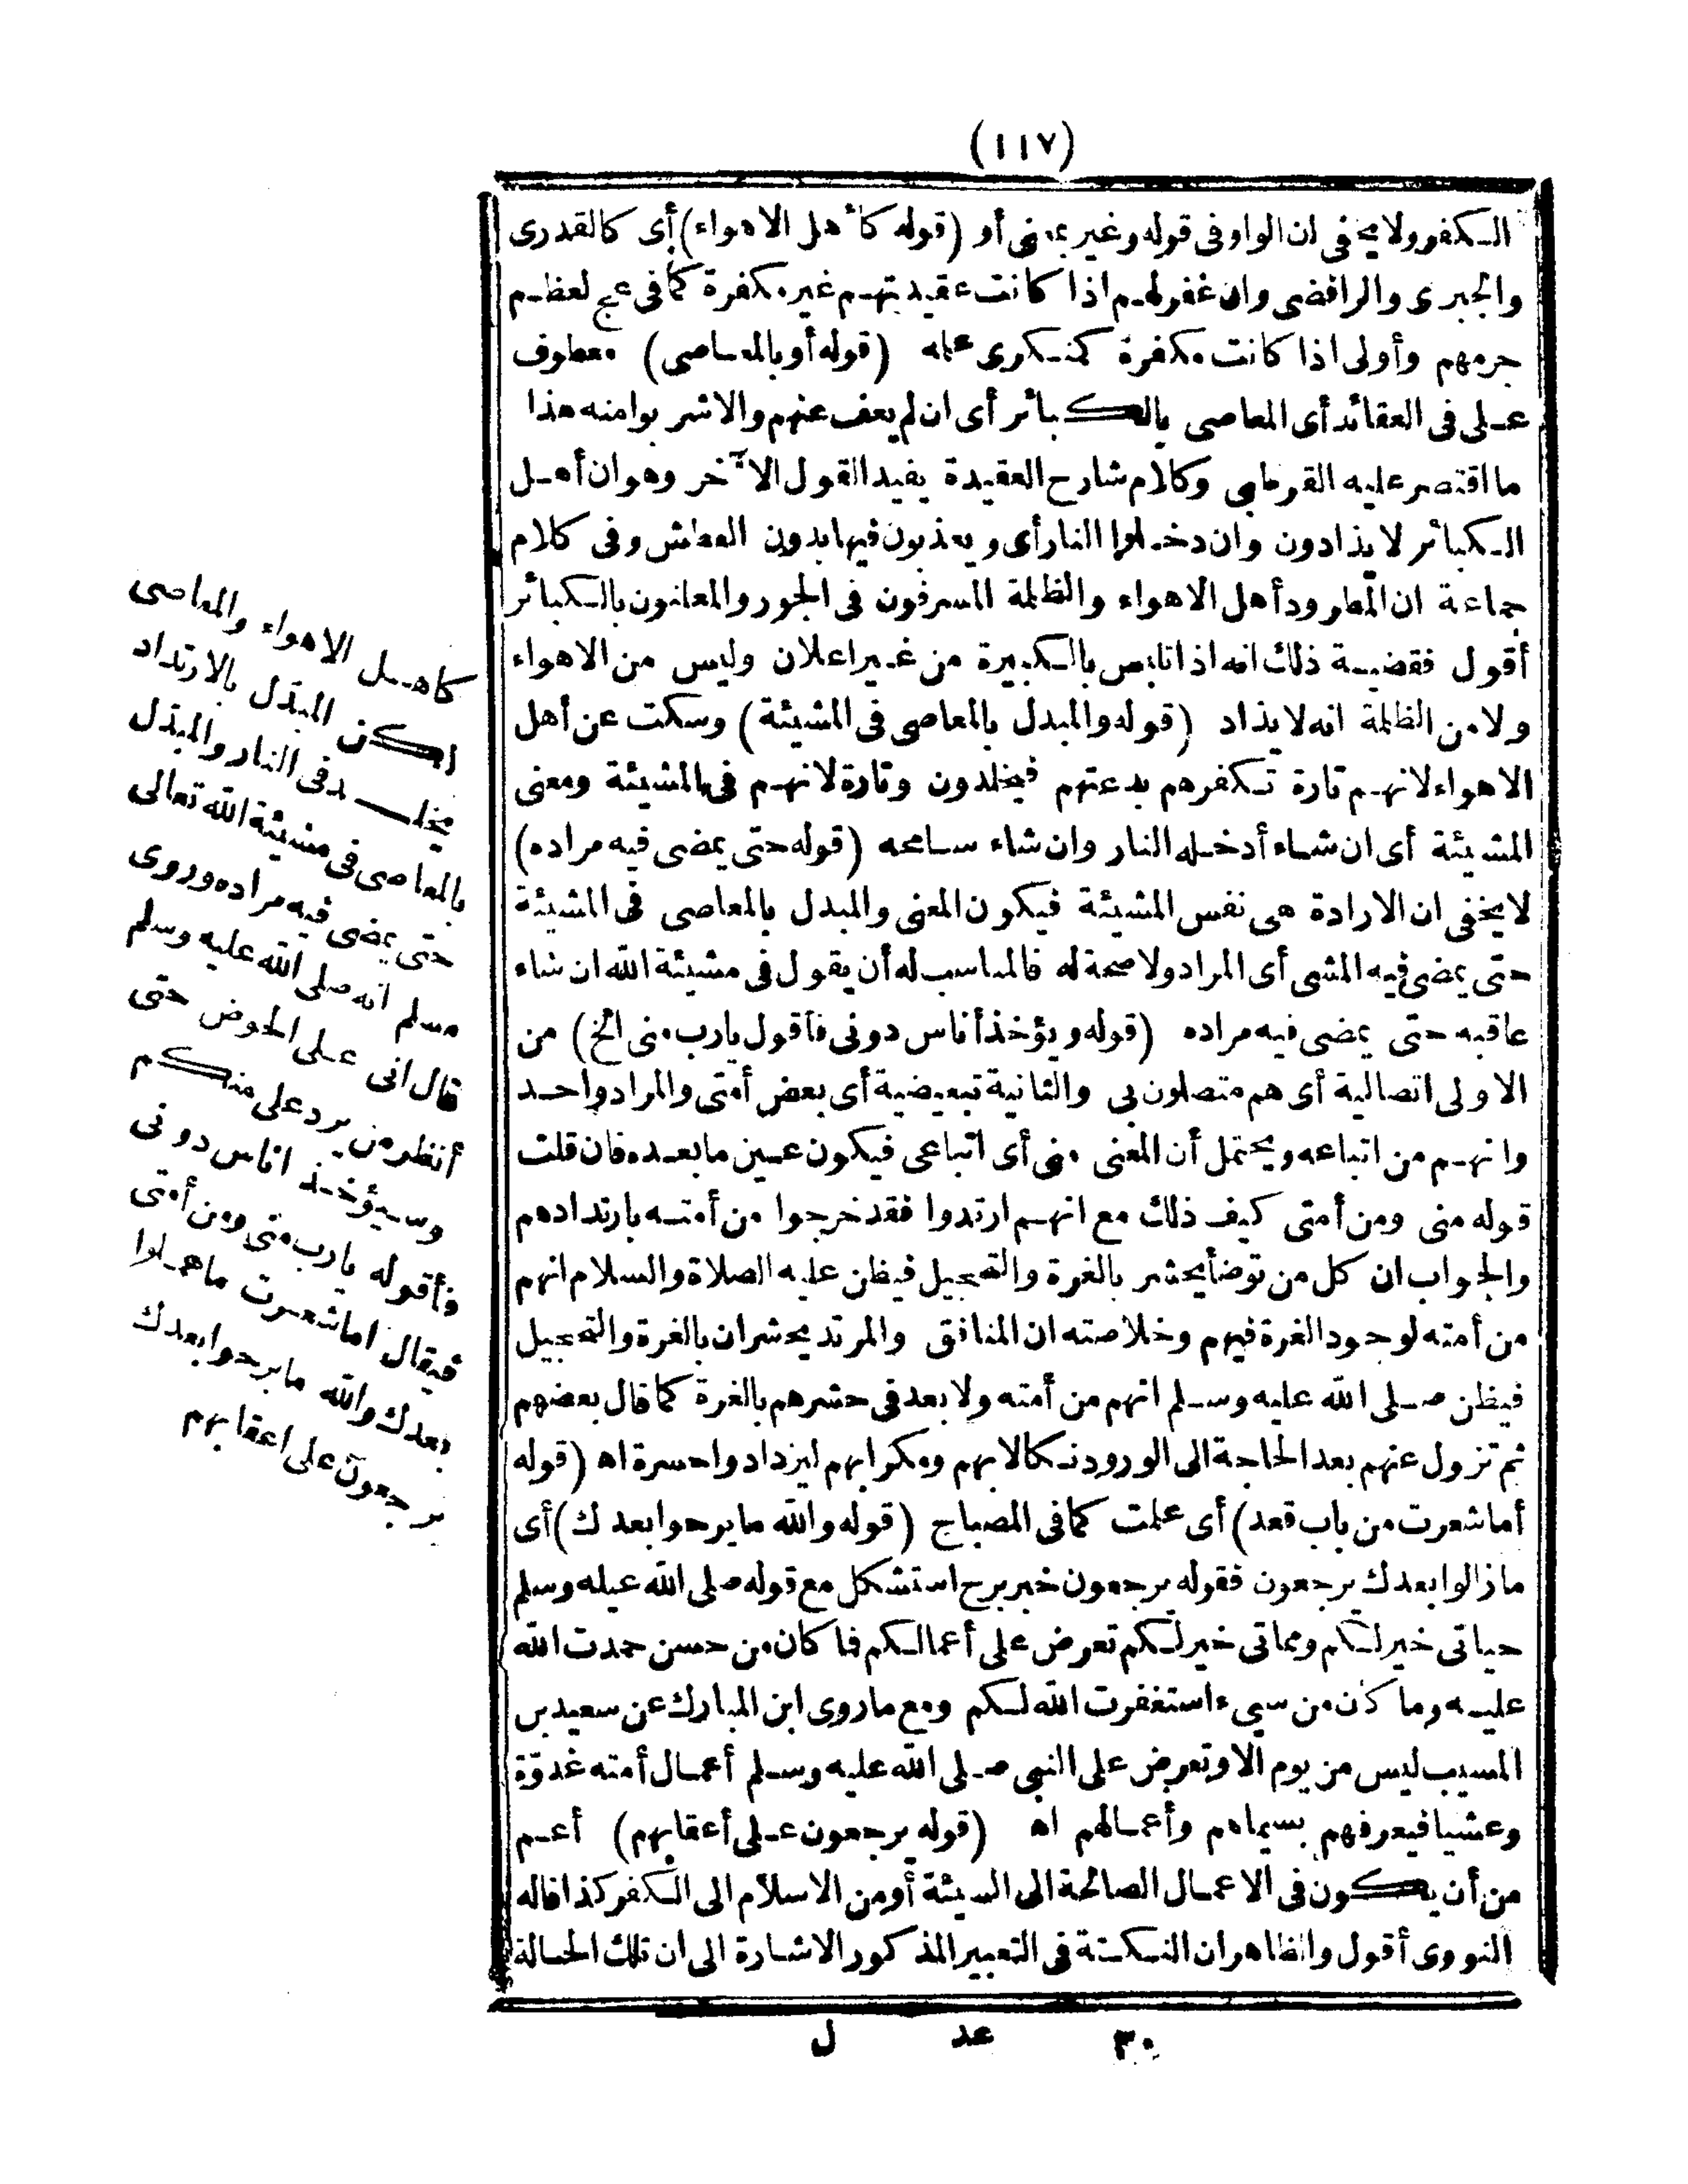 (١١٧)
الكفر ولا يخفى ان الواو فى قوله وغير بمعنى أو (قوله كأهل الاهواء) أى كالقدرى
والجبرى والرافضى وان غفر لهم اذا كانت عقيدتهم غير مكفرة كما فى عج لعظم
جرمهم وأولى اذا كانت مكفرة كمنكرى علمه (قوله أو بالمعاصى) معطوف
على فى العقائد أى المعاصى بالكبائر أى ان لم يعف عنهم والا شربوا منه هذا
ما اقتصر عليه القرطبى وكلام شارح العقيدة يفيد القول الآخر وهو ان أهل
الكبائر لا يذادون وان دخلوا النار أى ويعذبون فيها بدون العطش وفى كلام
جماعة ان المطرود أهل الاهواء والظلمة المسرفون فى الجور والمعلنون بالكبائر
أقول فقضية ذلك انه اذا تلبس بالكبيرة من غير اعلان وليس من الاهواء
ولا من الظلمة انه لا يذاد (قوله والمبدل بالمعاصى فى المشيئة) وسكت عن أهل
الاهواء لانهم تارة تكفرهم بدعتهم فيخلدون وتارة لا نهم فى المشيئة ومعنى
المشيئة أى ان شاء أدخله النار وان شاء سامحه (قوله حتى يمضى فيه مراده)
لا يخفى ان الارادة هى نفس المشيئة فيكون المعنى والمبدل بالمعاصى فى المشيئة
حتى يمضى فيه المشى أى المراد ولا صحة له فالمناسب له أن يقول فى مشيئة الله ان شاء
عاقبه حتى يمضى فيه مراده (قوله ويؤخذ أناس دونى فأقول يا رب منى الخ) من
الاولى اتصالية أى هم متصلون بى والثانية تبعيضية أى بعض أمتى والمراد واحد
وانهم من اتباعه ويحتمل أن المعنى منى أى اتباعى فيكون عين ما بعده فان قلت
قوله منى ومن أمتى كيف ذلك مع انهم ارتدوا فقد خرجوا من أمته بارتدادهم
والجواب ان كل من توضأ يحشر بالغرة والتحجيل فيظن عليه الصلاة والسلام انهم
من أمته لوجود الغرة فيهم وخلاصته ان المنافق والمرتد يحشران بالغرة والتحجيل
فيظن صلى الله عليه وسلم انهم من أمته ولا بعد فى حشرهم بالغرة كما قال بعضهم
ثم تزول عنهم بعد الحاجة الى الورود نكالا بهم ومكرا بهم ليزدادوا حسرة اه (قوله
أما شعرت من باب قعد) أى علمت كما فى المصباح (قوله والله ما برحوا بعدك) أى
ما زالوا بعدك يرجعون فقوله يرجعون خبر برح استشكل مع قوله صلى الله عيله وسلم
حياتى خير لكم ومماتى خير لكم تعرض على أعمالكم فما كان من حسن حمدت الله
عليه وما كان من سىء استغفرت الله لكم ومع ما روى ابن المبارك عن سعيد بن
المسيب ليس من يوم الا وتعرض على النبى صلى الله عليه وسلم أعمال أمته غدوّة
وعشيا فيعرفهم بسيماهم وأعمالهم اه (قوله يرجعون على أعقابهم) أعم
من أن يكون فى الاعمال الصالحة الى السيئة أو من الاسلام الى الكفر كذا قاله
النووى أقول والظاهر ان النكتة فى التعبير المذكور الاشارة الى ان تلك الحالة
٣٠ عد ل
كاهل الاهواء والمعاصى
لكن المبدّل بالارتداد
يخلد فى النار والمبدّل
بالمعاصى فى مشيئة الله تعالى
حتى يمضى فيه مراده وروى
مسلم انه صلى الله عليه وسلم
قال انى على الحوض حتى
أنظر من يرد على منكم
وسيؤخذ اناس دونى
فأقوله يا رب منى ومن أمتى
فيقال اما شعرت ما عملوا
بعدك والله ما برحوا بعدك
يرجعون على اعقابهم